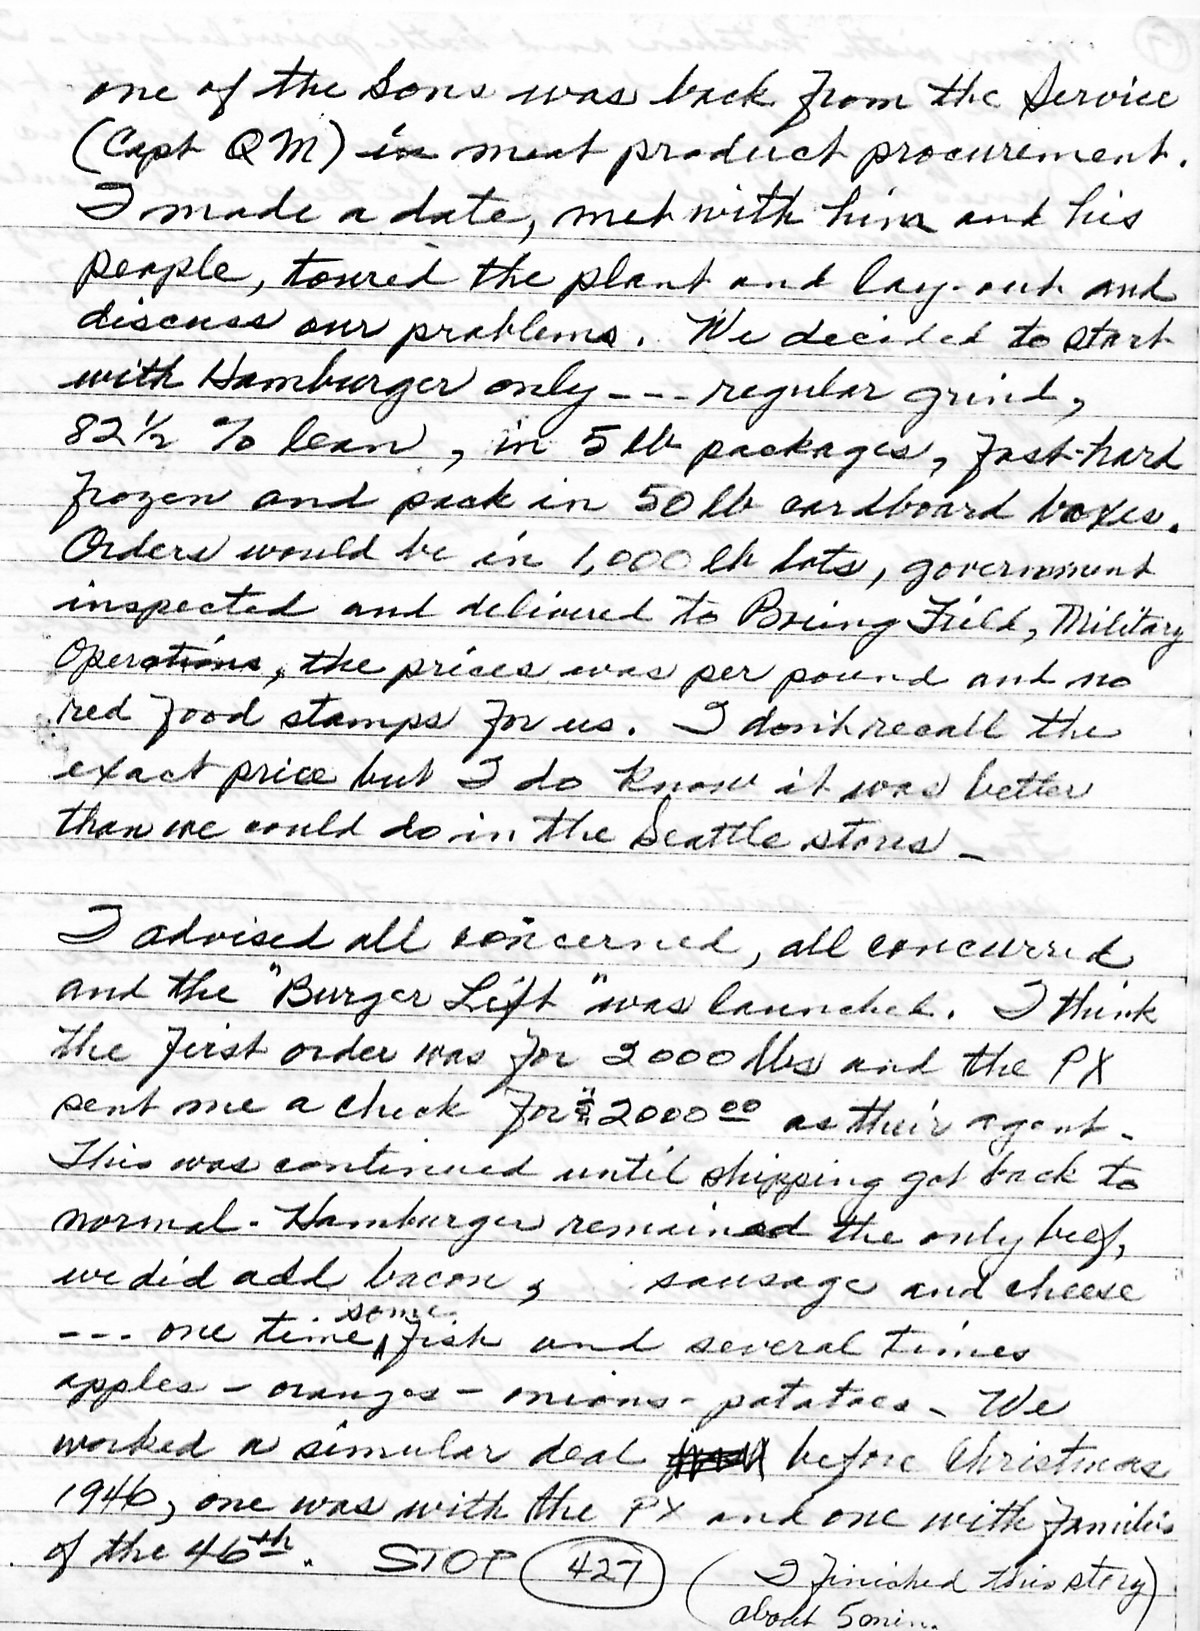 one of the Sons was back from the Service
(Capt QM) in meat product procurement.
I made a date, met with him and his
people, toured the plant and lay-out and
discuss our problems. We decided to start
with Hamburger only --- regular grind,
82½ % lean, in 5 lb packages, fast-hard
frozen and pack in 50 lb cardboard boxes.
Orders would be in 1,000 lb lots, government
inspected and delivered to Boeing Field, Military
Operations, the prices was per pound and no
red food stamps for us. I don't recall the
exact price but I do know it was better
than we could do in the Seattle stores -
I advised all concerned, all concurred
and the "Burger Lift" was launched. I think
the first order was for 2000 lbs and the PX
sent me a check for $2000 00 as their agent.
This was continued until shipping got back to
normal - Hamburger remained the only beef,
we did add bacon, sausage and cheese
--- one time some fish and several times
apples - oranges - onions - potatoes - We
worked a simular deal before Christmas
1946, one was with the PX and one with families
of the 46th. STOP 427 (I finished this story)
about 5 min.